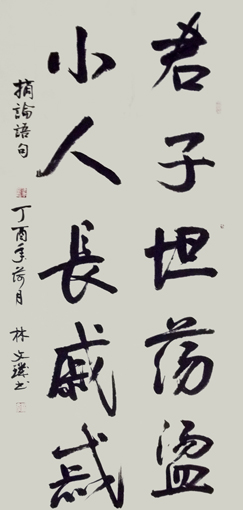 君子坦蕩盪
小人長戚慼
摘論語句
丁酉年荷月 林文